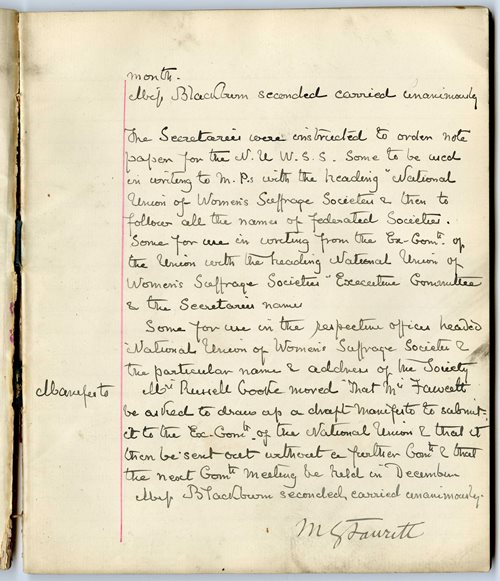 month.
Miss Blackburn seconded carried unanimously
The Secretaries were instructed to order note
paper for the N.U.W.S.S. Some to be used
in writing to M.P.s with the heading "National
Union of Women's Suffrage Societies & then to
follow all the names of federated Societies.
Some for use in writing from the Ex-Comtt. of
the Union with the heading National Union of
Women's Suffrage Societies" Executive Committee
& the Secretaries names
Some for use in the respective offices headed
"National Union of Women's Suffrage Societies &
the particular name & address of the Society
Manifesto
Mrs Russell Cooke moved "That Mrs Fawcett
be asked to draw up a draft Manifesto to submit
it to the Ex-Comtt. of the National Union & that it
then be sent out without a further Comtt & that
the next Comtt Meeting be held in December
Miss Blackburn seconded, carried unanimously.
M G Fawcett